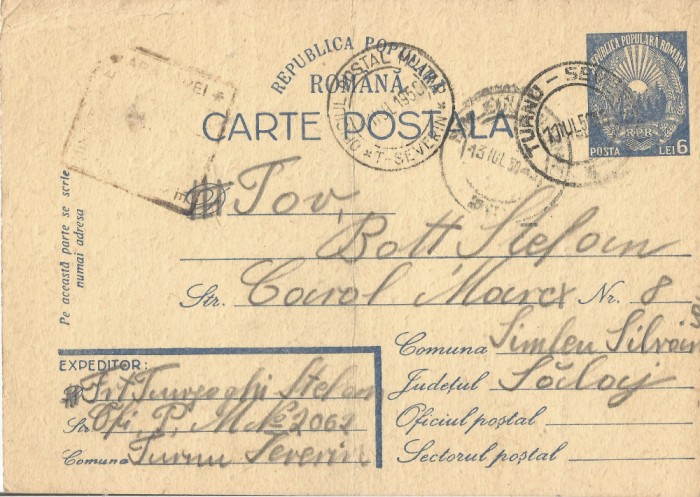 REPUBLICA POPULARA
ROMÂNĂ
CARTE POSTALA
REPUBLICA POPULARA ROMANA
RPR
POSTA LEI 6
OFICIUL POSTAL
T-SEVERIN
TURNU-SEVERIN
13 IUL 50
Pe această parte se scrie
numai adresa
Tov,
Bott Stefan
Str. Carol Marcx Nr. 8
Comuna Simleu Silvan
Județul Sălaj
Oficiul poștal
Sectorul postal
EXPEDITOR:
Frt Stefan
Str. Ofi. P. M No 2062
Comuna Turnu Severin